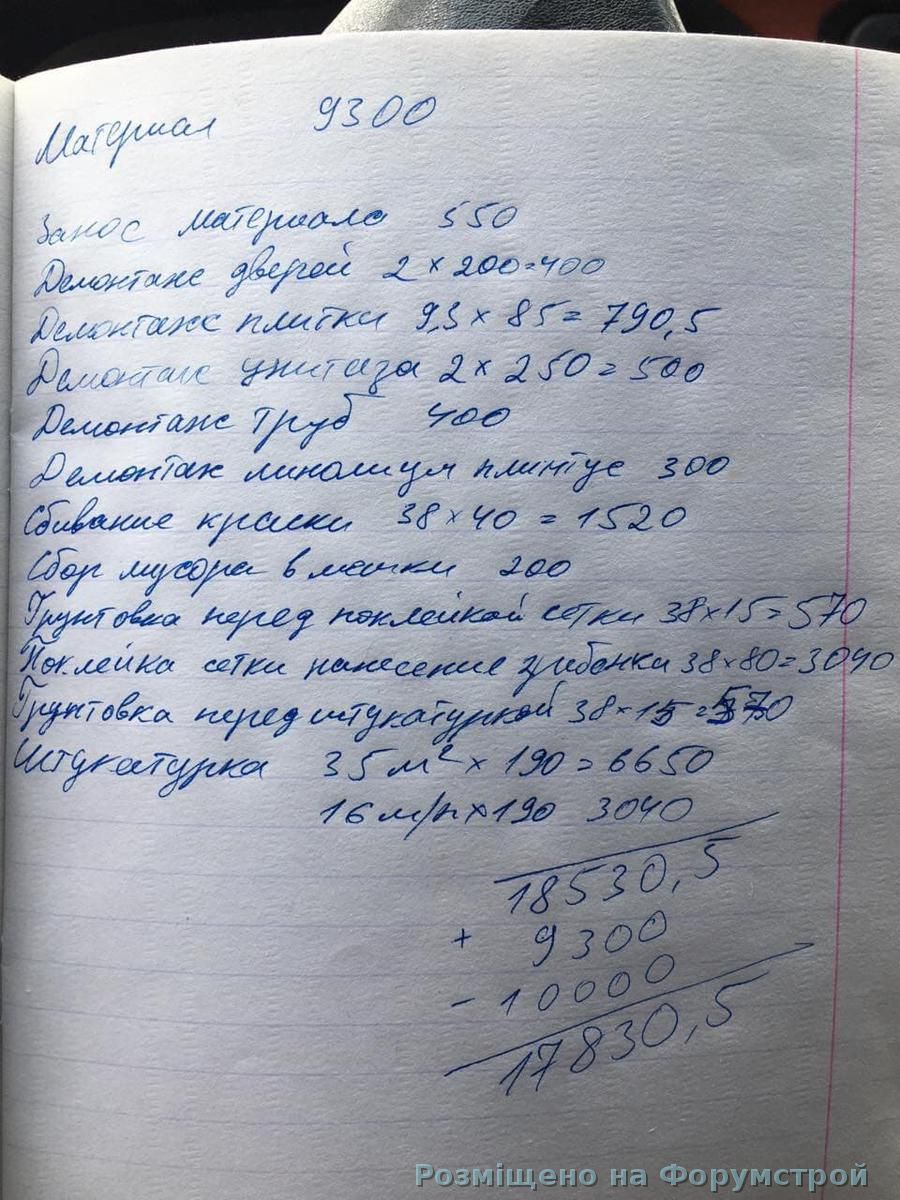 Материал 9300
Занос материала 550
Демонтаж дверей 2 × 200=400
Демонтаж плитки 9,3 × 85 = 790,5
Демонтаж унитаза 2 × 250 = 500
Демонтаж труб 400
Демонтаж линолиум плинтус 300
Сбивание краски 38 × 40 = 1520
Сбор мусора в мешки 200
Грунтовка перед поклейкой сетки 38×15=570
Поклейка сетки нанесение грибенки 38×80=3040
Грунтовка перед штукатуркой 38×15=570
Штукатурка 35 м² × 190 = 6650
16 м/п × 190 3040
18530,5
+ 9300
- 10000
17830,5
Розміщено на Форумстрой